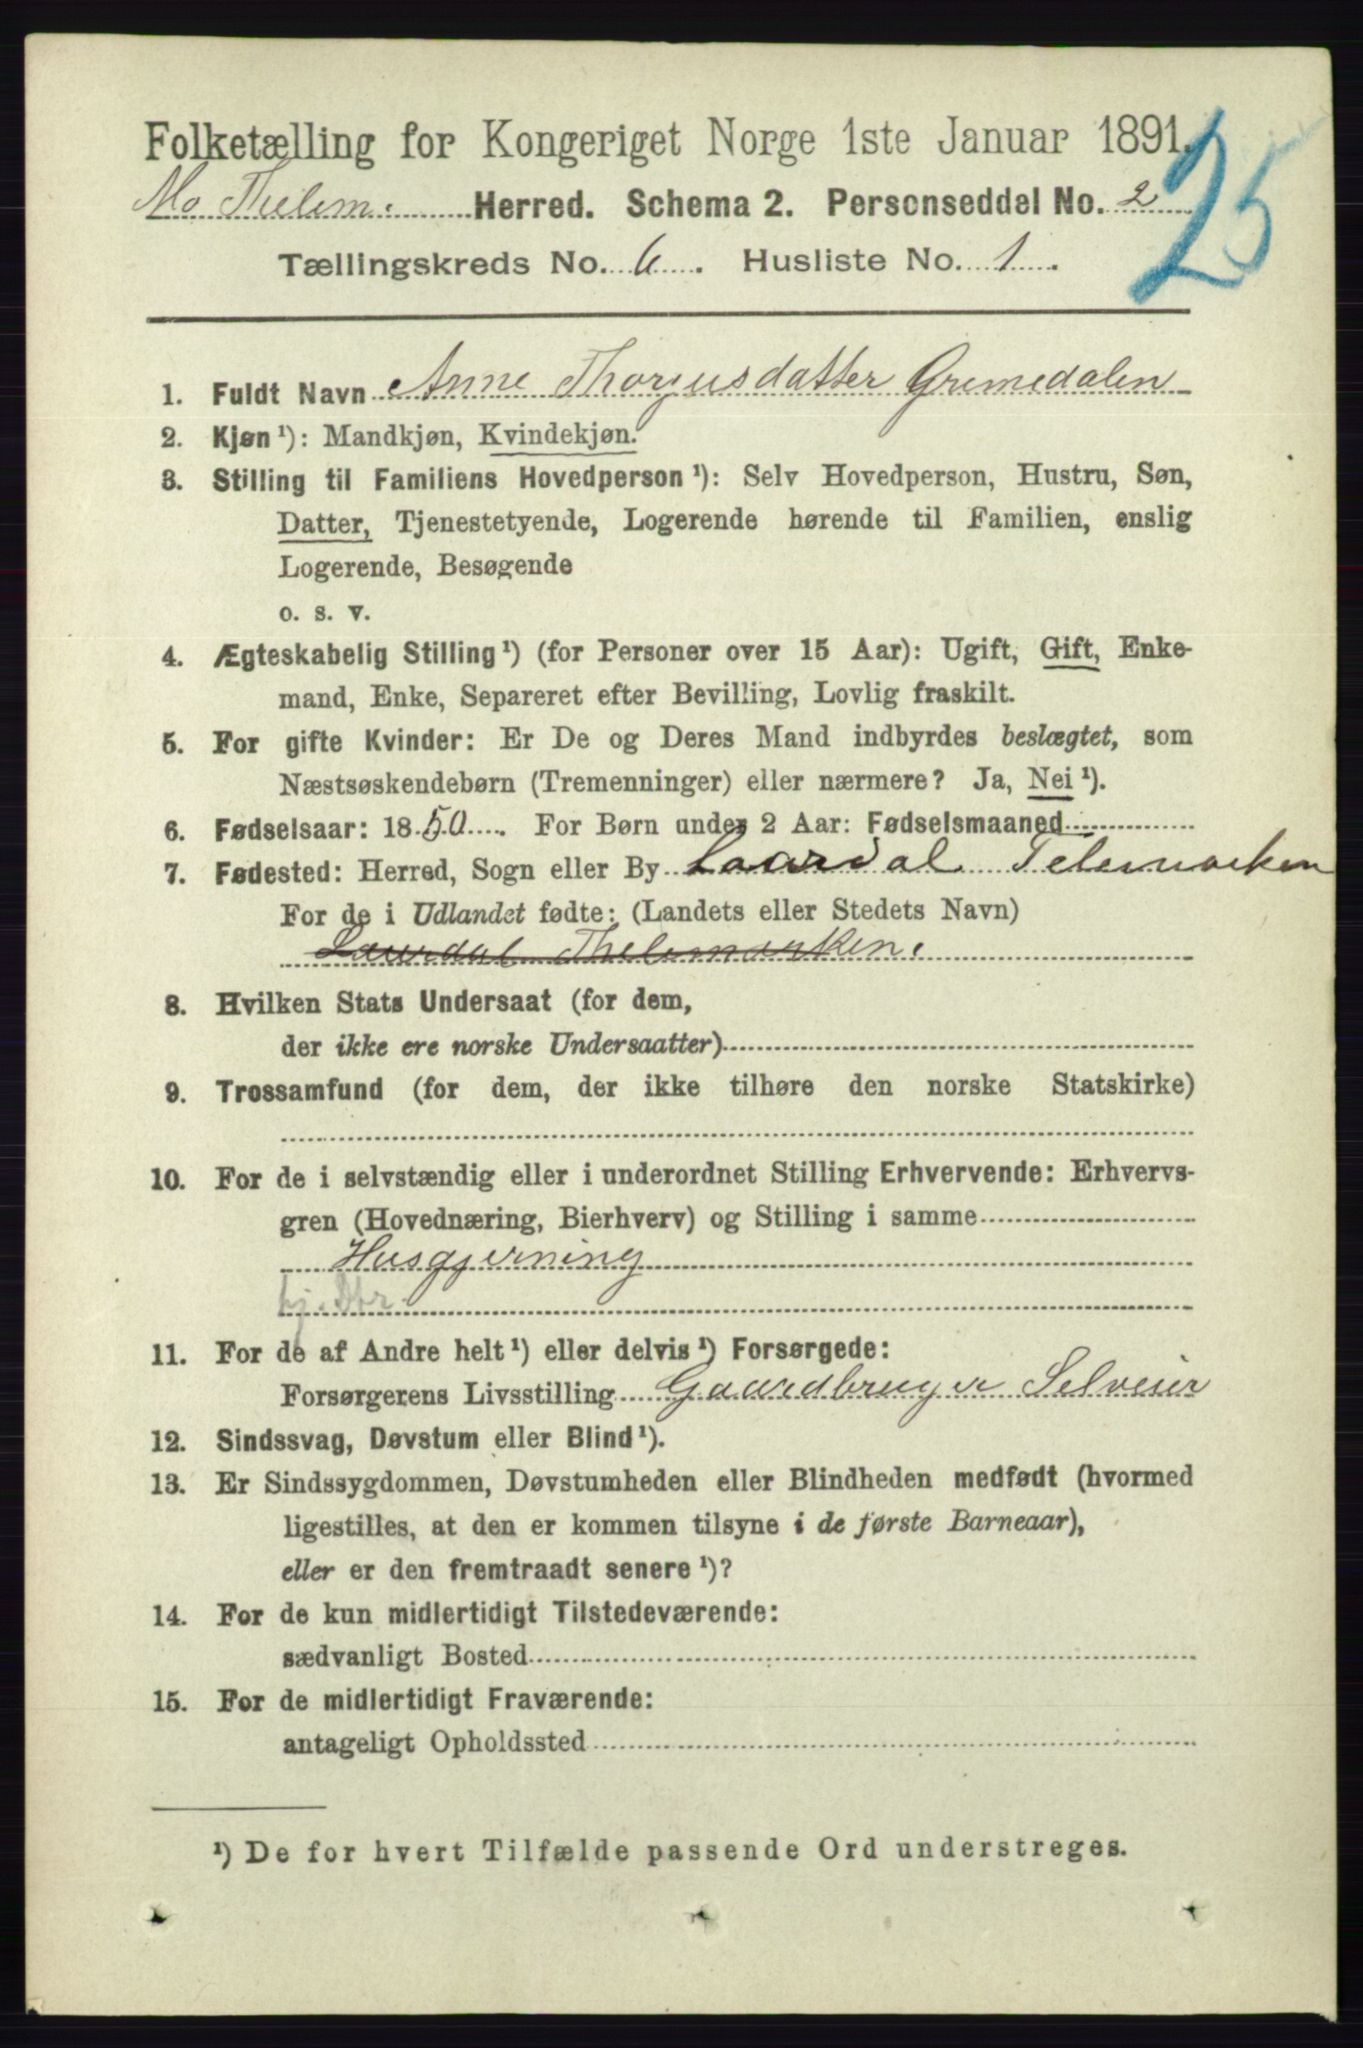 Folketælling for Kongeriget Norge 1ste Januar 1891.
25
Mo Thelem. Herred. Schema 2. Personseddel No. 2
Tællingskreds No. 6. Husliste No. 1.
1. Fuldt Navn Anne Thorjusdatter Grimedalen
2. Kjøn ¹): Mandkjøn, Kvindekjøn.
3. Stilling til Familiens Hovedperson ¹): Selv Hovedperson, Hustru, Søn,
Datter, Tjenestetyende, Logerende hørende til Familien, enslig
Logerende, Besøgende
o. s. v.
4. Ægteskabelig Stilling ¹) (for Personer over 15 Aar): Ugift, Gift, Enke-
mand, Enke, Separeret efter Bevilling, Lovlig fraskilt.
5. For gifte Kvinder: Er De og Deres Mand indbyrdes beslægtet, som
Næstsøskendebørn (Tremenninger) eller nærmere? Ja, Nei ¹).
6. Fødselsaar: 1850. For Børn under 2 Aar: Fødselsmaaned
7. Fødested: Herred, Sogn eller By Laardal Telemarken
For de i Udlandet fødte: (Landets eller Stedets Navn)
Laurdal Thelemarken.
8. Hvilken Stats Undersaat (for dem,
der ikke ere norske Undersaatter)
9. Trossamfund (for dem, der ikke tilhøre den norske Statskirke)
10. For de i selvstændig eller i underordnet Stilling Erhvervende: Erhvervs-
gren (Hovednæring, Bierhverv) og Stilling i samme
Husgjerning
hj. Dtr.
11. For de af Andre helt ¹) eller delvis ¹) Forsørgede:
Forsørgerens Livsstilling Gaardbruger Selveier
12. Sindssvag, Døvstum eller Blind ¹).
13. Er Sindssygdommen, Døvstumheden eller Blindheden medfødt (hvormed
ligestilles, at den er kommen tilsyne i de første Barneaar),
eller er den fremtraadt senere ¹)?
14. For de kun midlertidigt Tilstedeværende:
sædvanligt Bosted
15. For de midlertidigt Fraværende:
antageligt Opholdssted
¹) De for hvert Tilfælde passende Ord understreges.